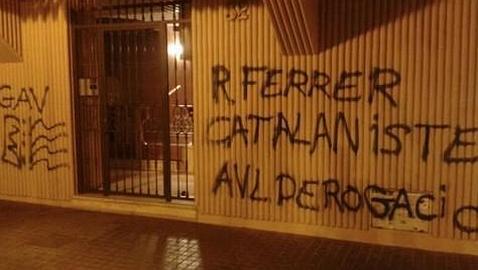 GAV
R. FERRER
CATALANISTE
AVL DEROGACIO